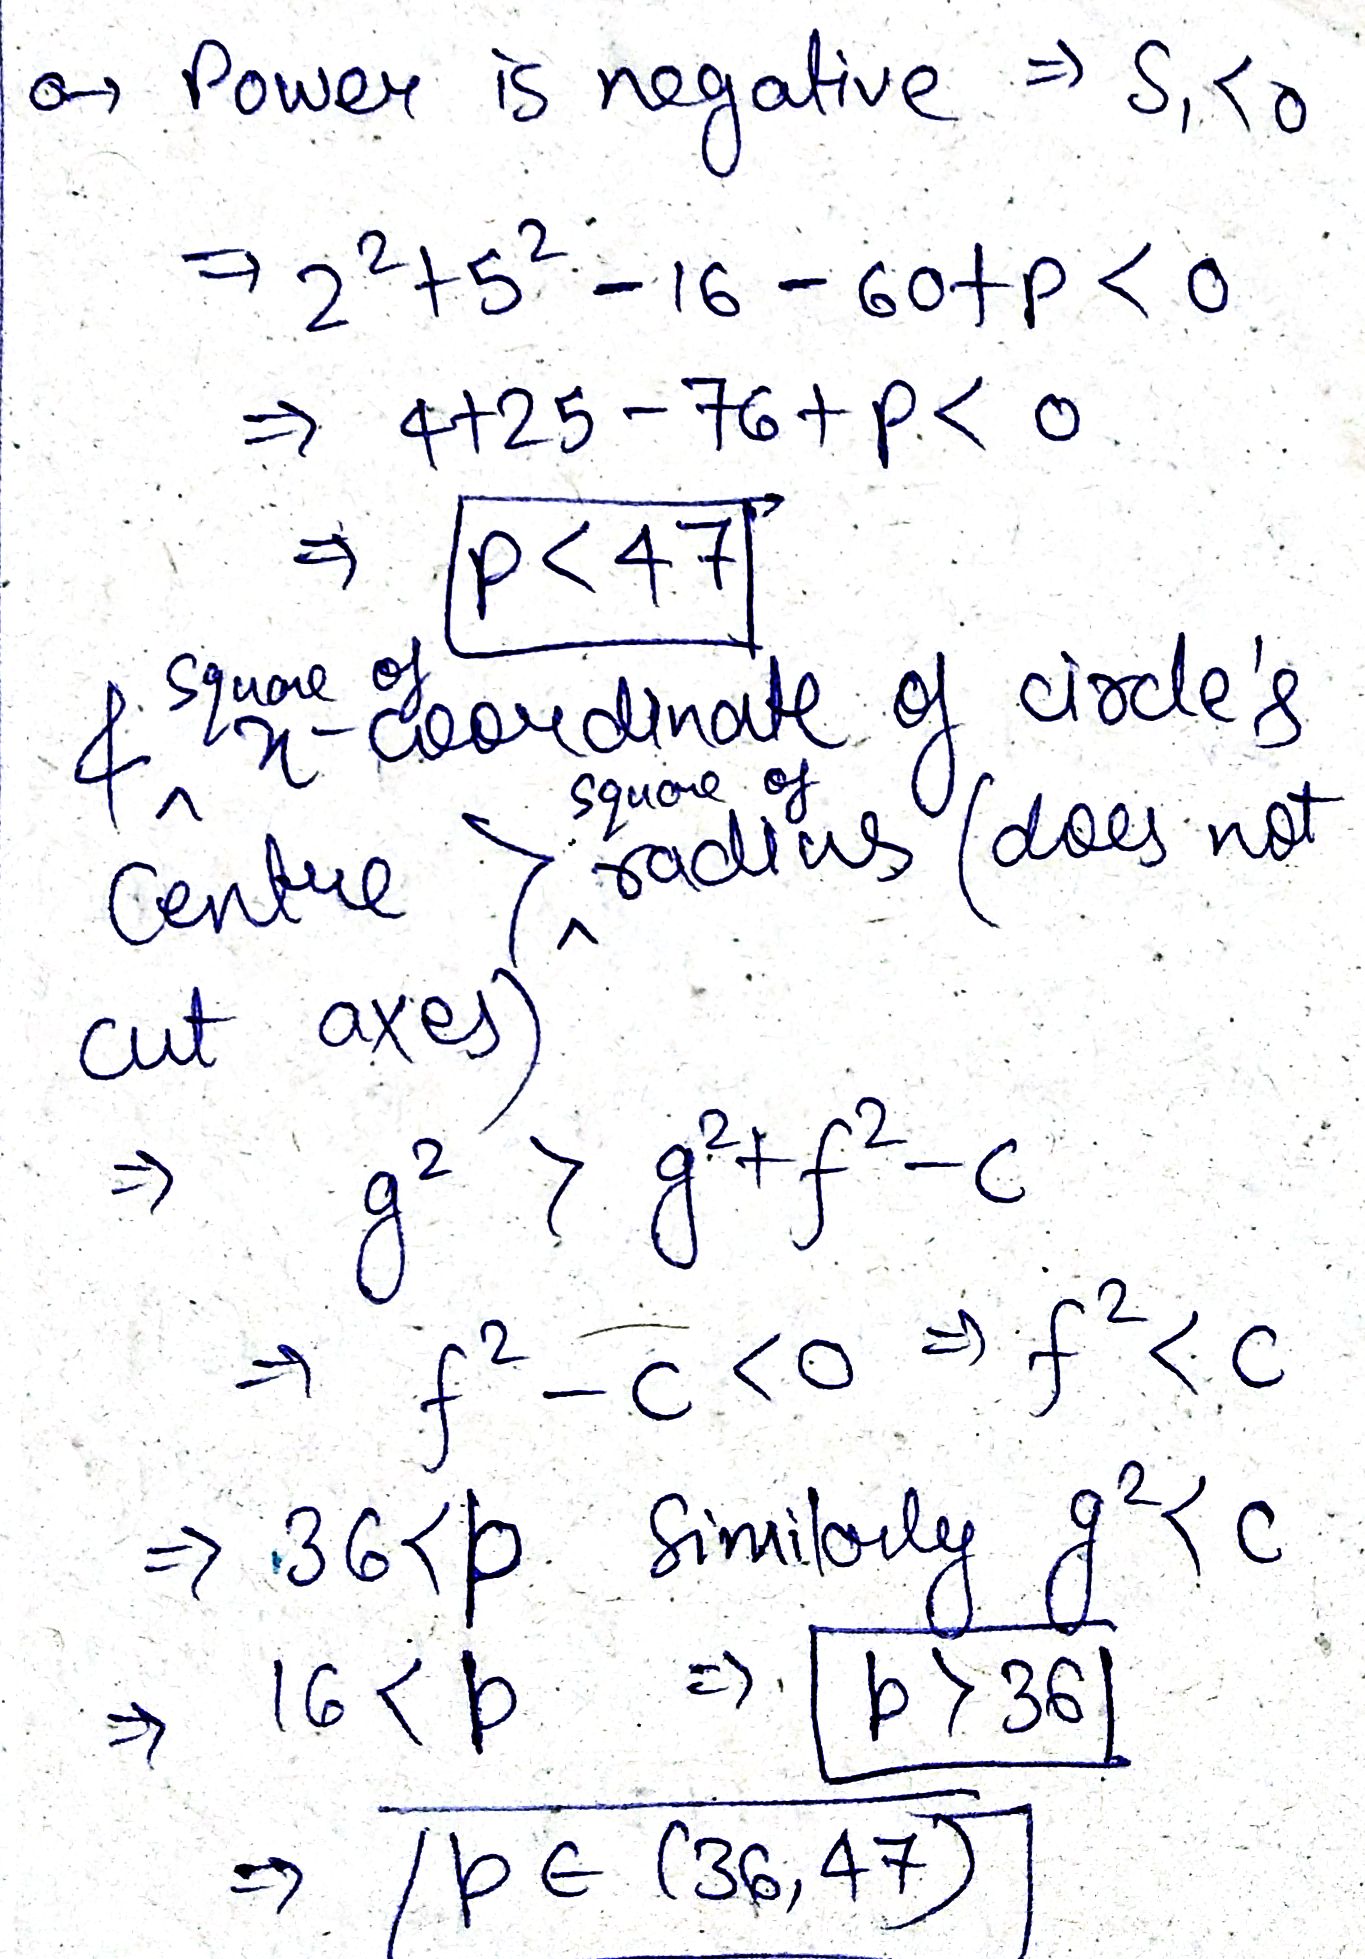 → Power is negative ⇒ S₁ < 0
⇒ 2² + 5² - 16 - 60 + p < 0
⇒ 4 + 25 - 76 + p < 0
⇒ p < 47
& square of x-coordinate of circle's
centre > square of radius (does not
cut axes)
⇒ g² > g² + f² - c
⇒ f² - c < 0 ⇒ f² < c
⇒ 36 < p Similarly g² < c
⇒ 16 < p ⇒ p > 36
⇒ p ∈ (36, 47)